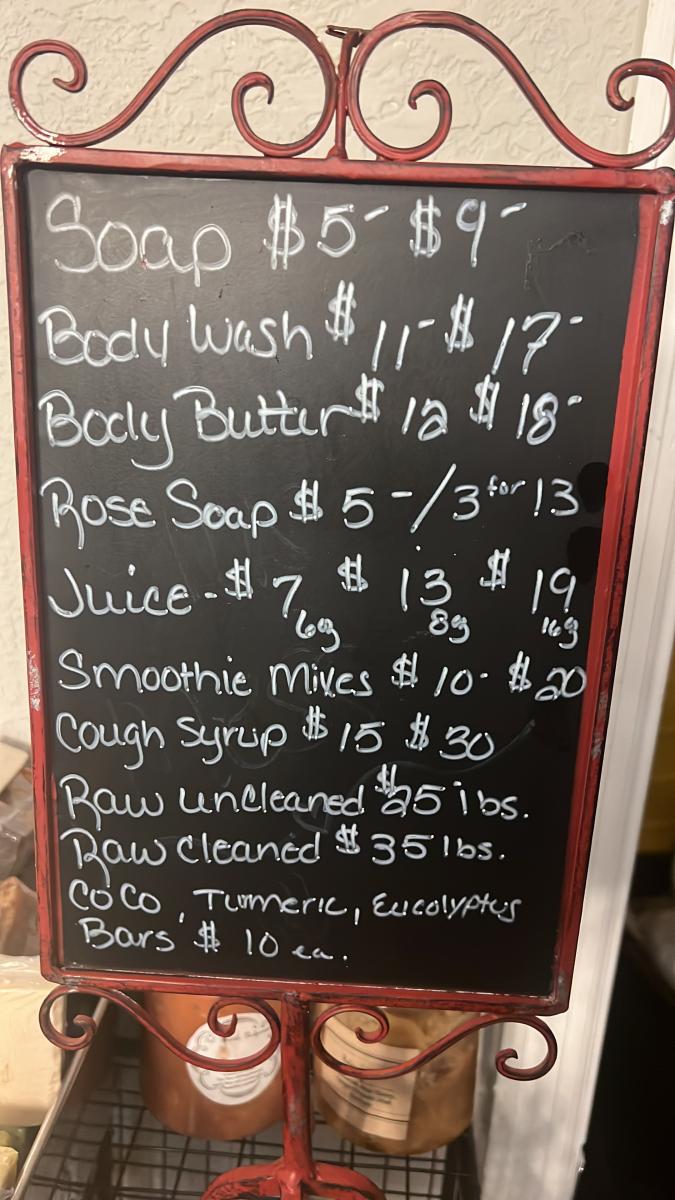 Soap $5- $9-
Body Wash $11- $17-
Body Butter $12 $18-
Rose Soap $5-/3 for 13
Juice - $7 $13 $19
6g 8g 16g
Smoothie Mixes $10- $20
Cough Syrup $15 $30
Raw uncleaned $25 lbs.
Raw cleaned $35 lbs.
CoCo, Turmeric, Eucolyptus
Bars $10 ea.